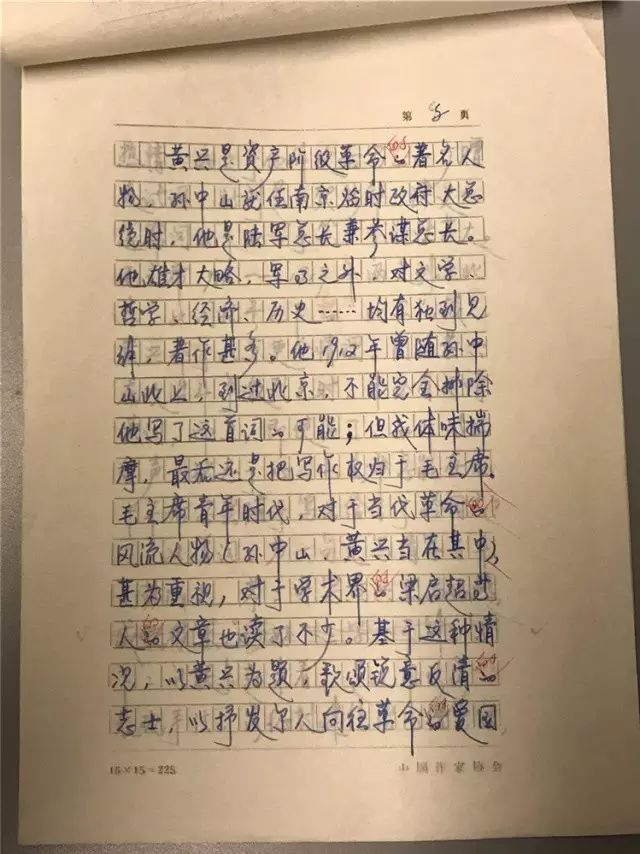 第5页
黄兴是资产阶级革命的著名人
物，孙中山就任南京临时政府大总
统时，他是陆军总长兼参谋总长。
他雄才大略，军事之外，对文学、
哲学、经济、历史……均有独到见
解，著作甚多。他1912年曾随孙中
山北上，到过北京，不能完全排除
他写了这首词的可能；但我体味揣
摩，最后还是把写作权归于毛主席。
毛主席青年时代，对于当代革命的
风流人物（孙中山、黄兴当在其中）
甚为重视，对于学术界的梁启超等
人的文章也读了不少。基于这种情
况，以黄兴为题，歌颂锐意反清的
志士，以抒发个人向往革命的爱国
15×15=225
中国作家协会